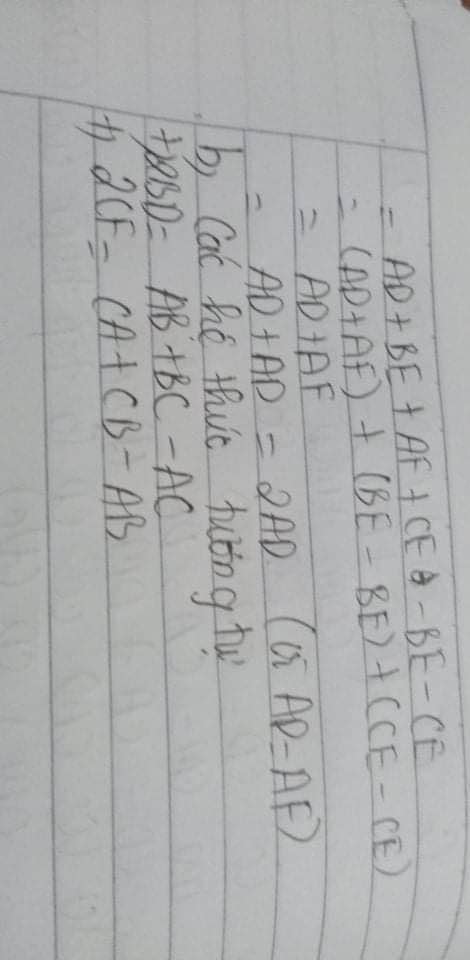 = AD + BE + AF + CE - BE - CE
= (AD + AF) + (BE - BE) + (CE - CE)
= AD + AF
= AD + AD = 2AD (vì AD = AF)
b) Các hệ thức tương tự
+) 2BD = AB + BC - AC
+) 2CF = CA + CB - AB